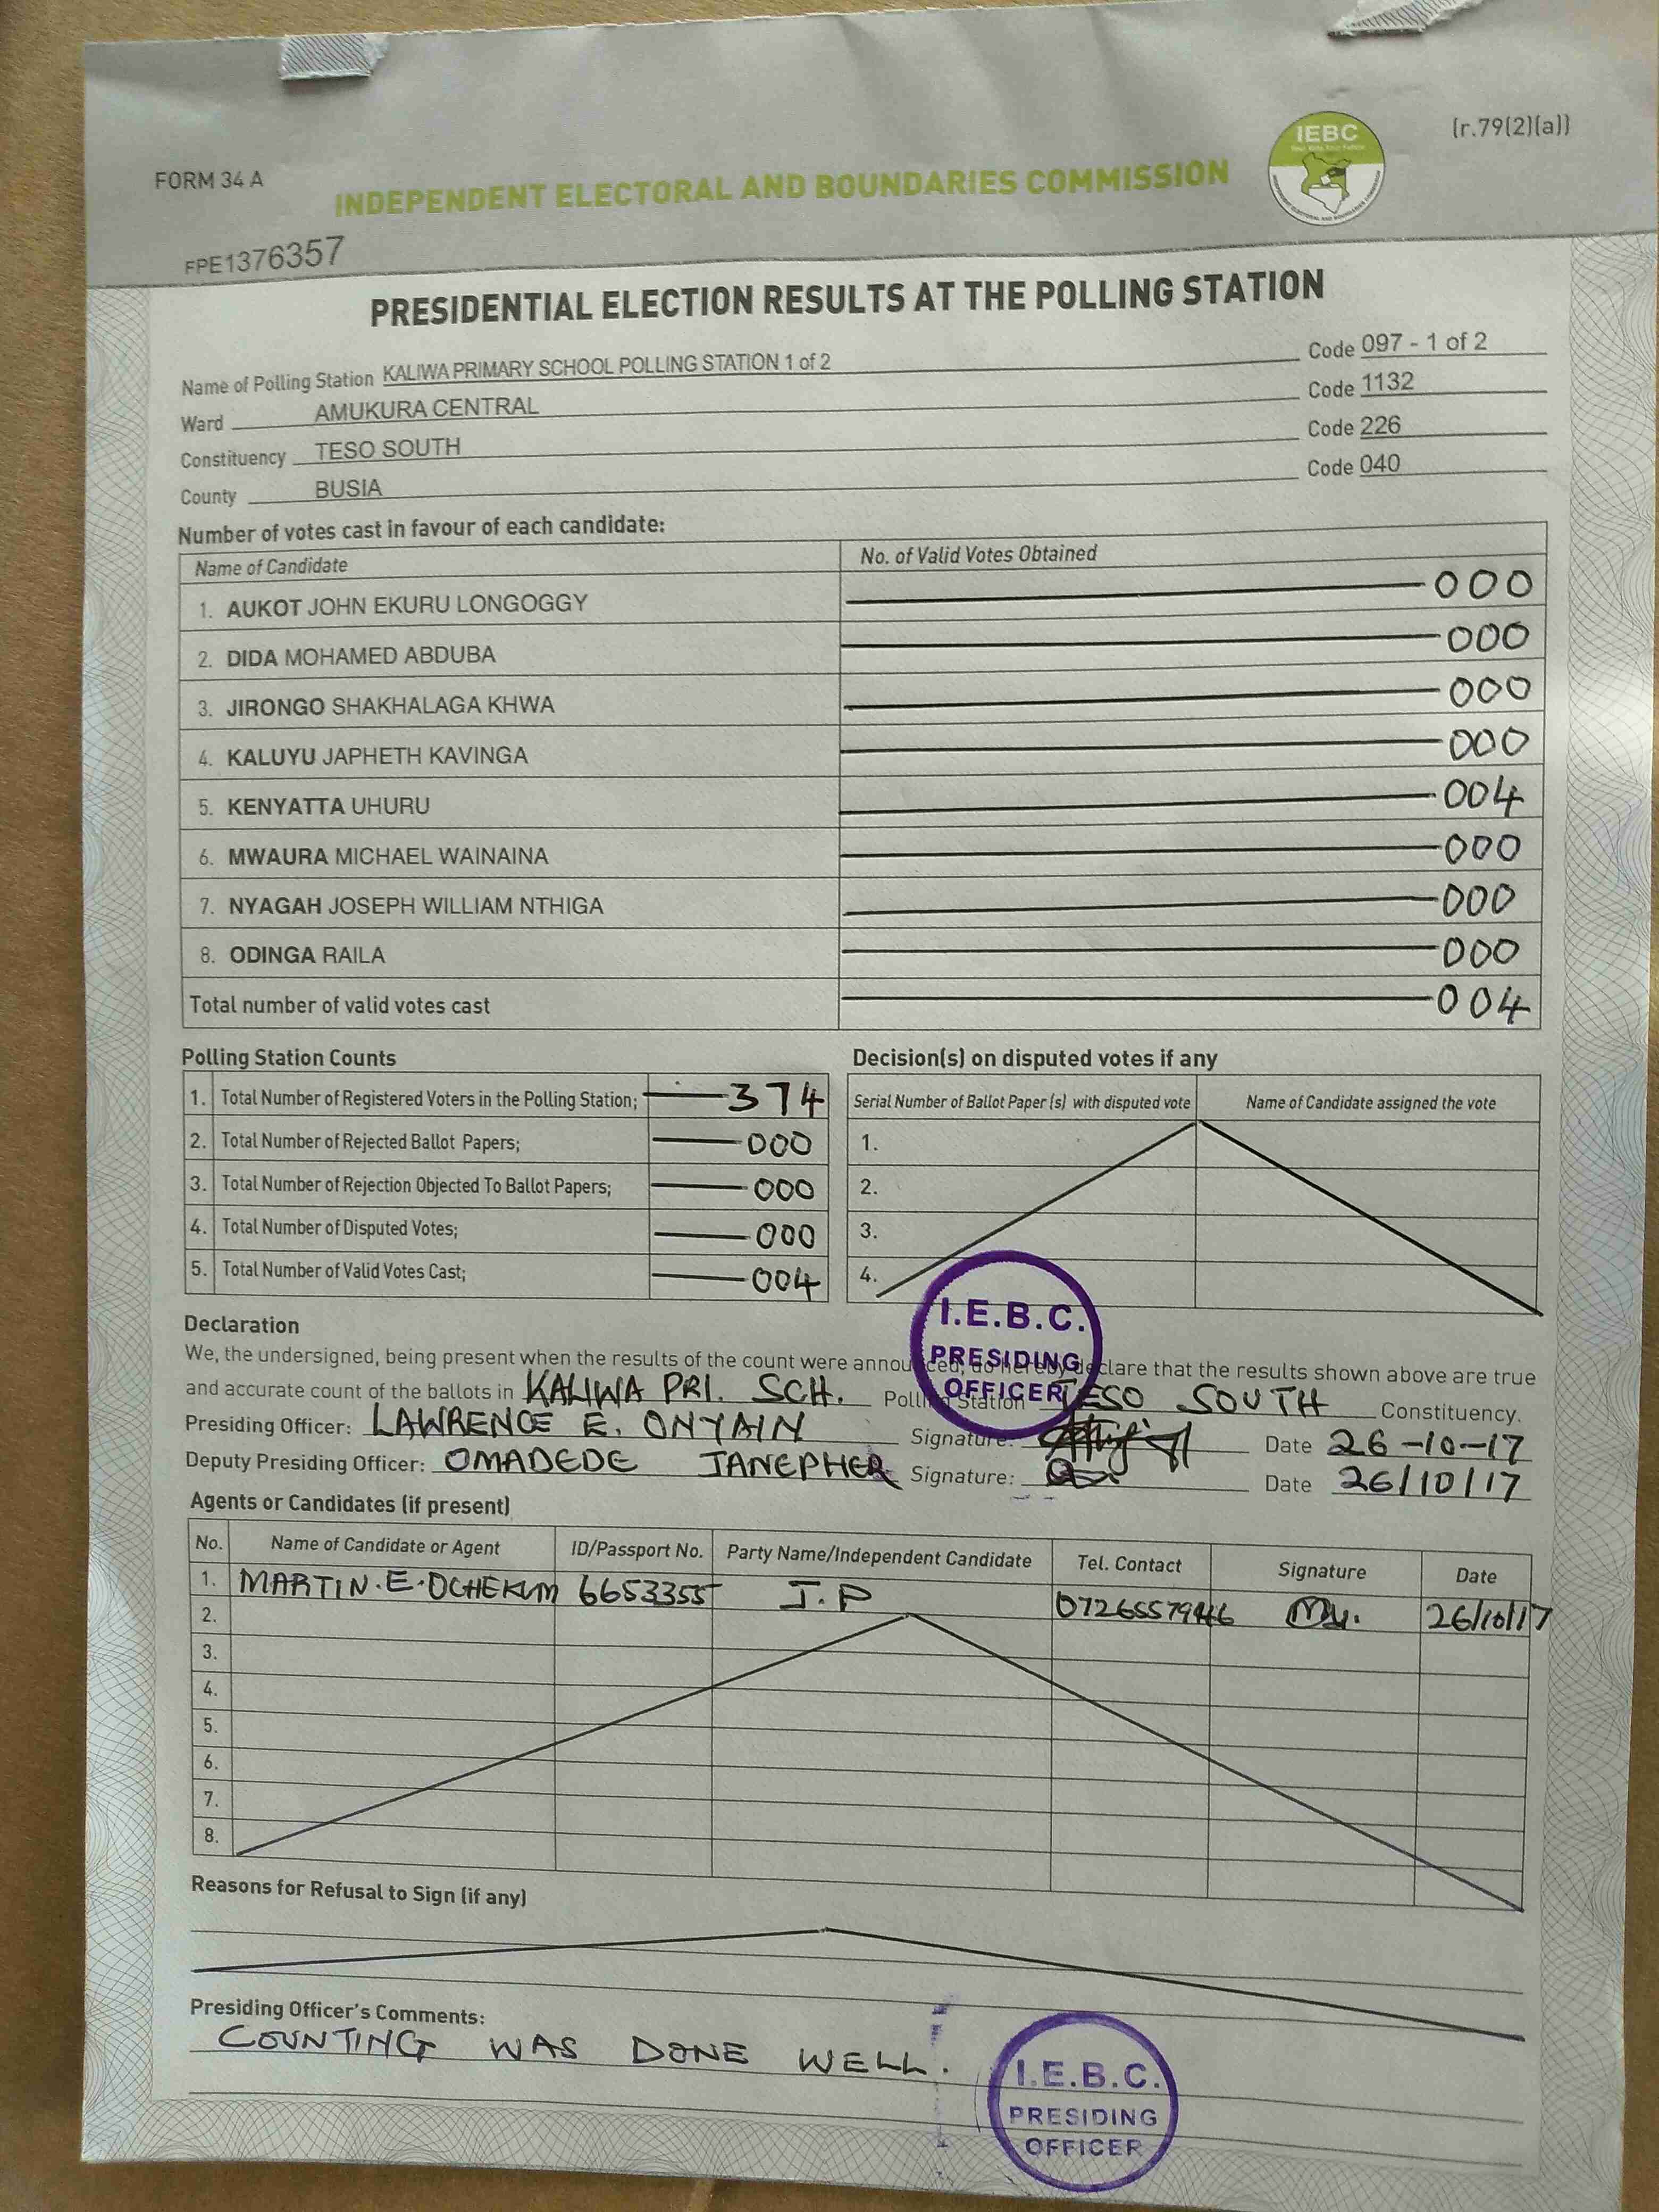 (r.79(2)(a))
IEBC
FORM 34 A
INDEPENDENT ELECTORAL AND BOUNDARIES COMMISSION
FPE1376357
PRESIDENTIAL ELECTION RESULTS AT THE POLLING STATION
Name of Polling Station KALIWA PRIMARY SCHOOL POLLING STATION 1 of 2 Code 097 - 1 of 2
Ward AMUKURA CENTRAL Code 1132
Constituency TESO SOUTH Code 226
County BUSIA Code 040
Number of votes cast in favour of each candidate:
Name of Candidate No. of Valid Votes Obtained
1. AUKOT JOHN EKURU LONGOGGY 000
2. DIDA MOHAMED ABDUBA 000
3. JIRONGO SHAKHALAGA KHWA 000
4. KALUYU JAPHETH KAVINGA 000
5. KENYATTA UHURU 004
6. MWAURA MICHAEL WAINAINA 000
7. NYAGAH JOSEPH WILLIAM NTHIGA 000
8. ODINGA RAILA 000
Total number of valid votes cast 004
Polling Station Counts
1. Total Number of Registered Voters in the Polling Station; 374
2. Total Number of Rejected Ballot Papers; 000
3. Total Number of Rejection Objected To Ballot Papers; 000
4. Total Number of Disputed Votes; 000
5. Total Number of Valid Votes Cast; 004
Decision(s) on disputed votes if any
Serial Number of Ballot Paper (s) with disputed vote Name of Candidate assigned the vote
1.
2.
3.
4.
I.E.B.C.
PRESIDING
OFFICER
Declaration
We, the undersigned, being present when the results of the count were announced, do hereby declare that the results shown above are true
and accurate count of the ballots in KALIWA PRI. SCH. Polling Station TESO SOUTH Constituency.
Presiding Officer: LAWRENCE E. ONYAIN Signature: Date 26-10-17
Deputy Presiding Officer: OMADEDE JANEPHER Signature: Date 26/10/17
Agents or Candidates (if present)
No. Name of Candidate or Agent ID/Passport No. Party Name/Independent Candidate Tel. Contact Signature Date
1. MARTIN.E.OCHEKUM 6653355 J.P 26/10/17
2.
3.
4.
5.
6.
7.
8.
Reasons for Refusal to Sign (if any)
Presiding Officer's Comments:
COUNTING WAS DONE WELL.
I.E.B.C.
PRESIDING
OFFICER